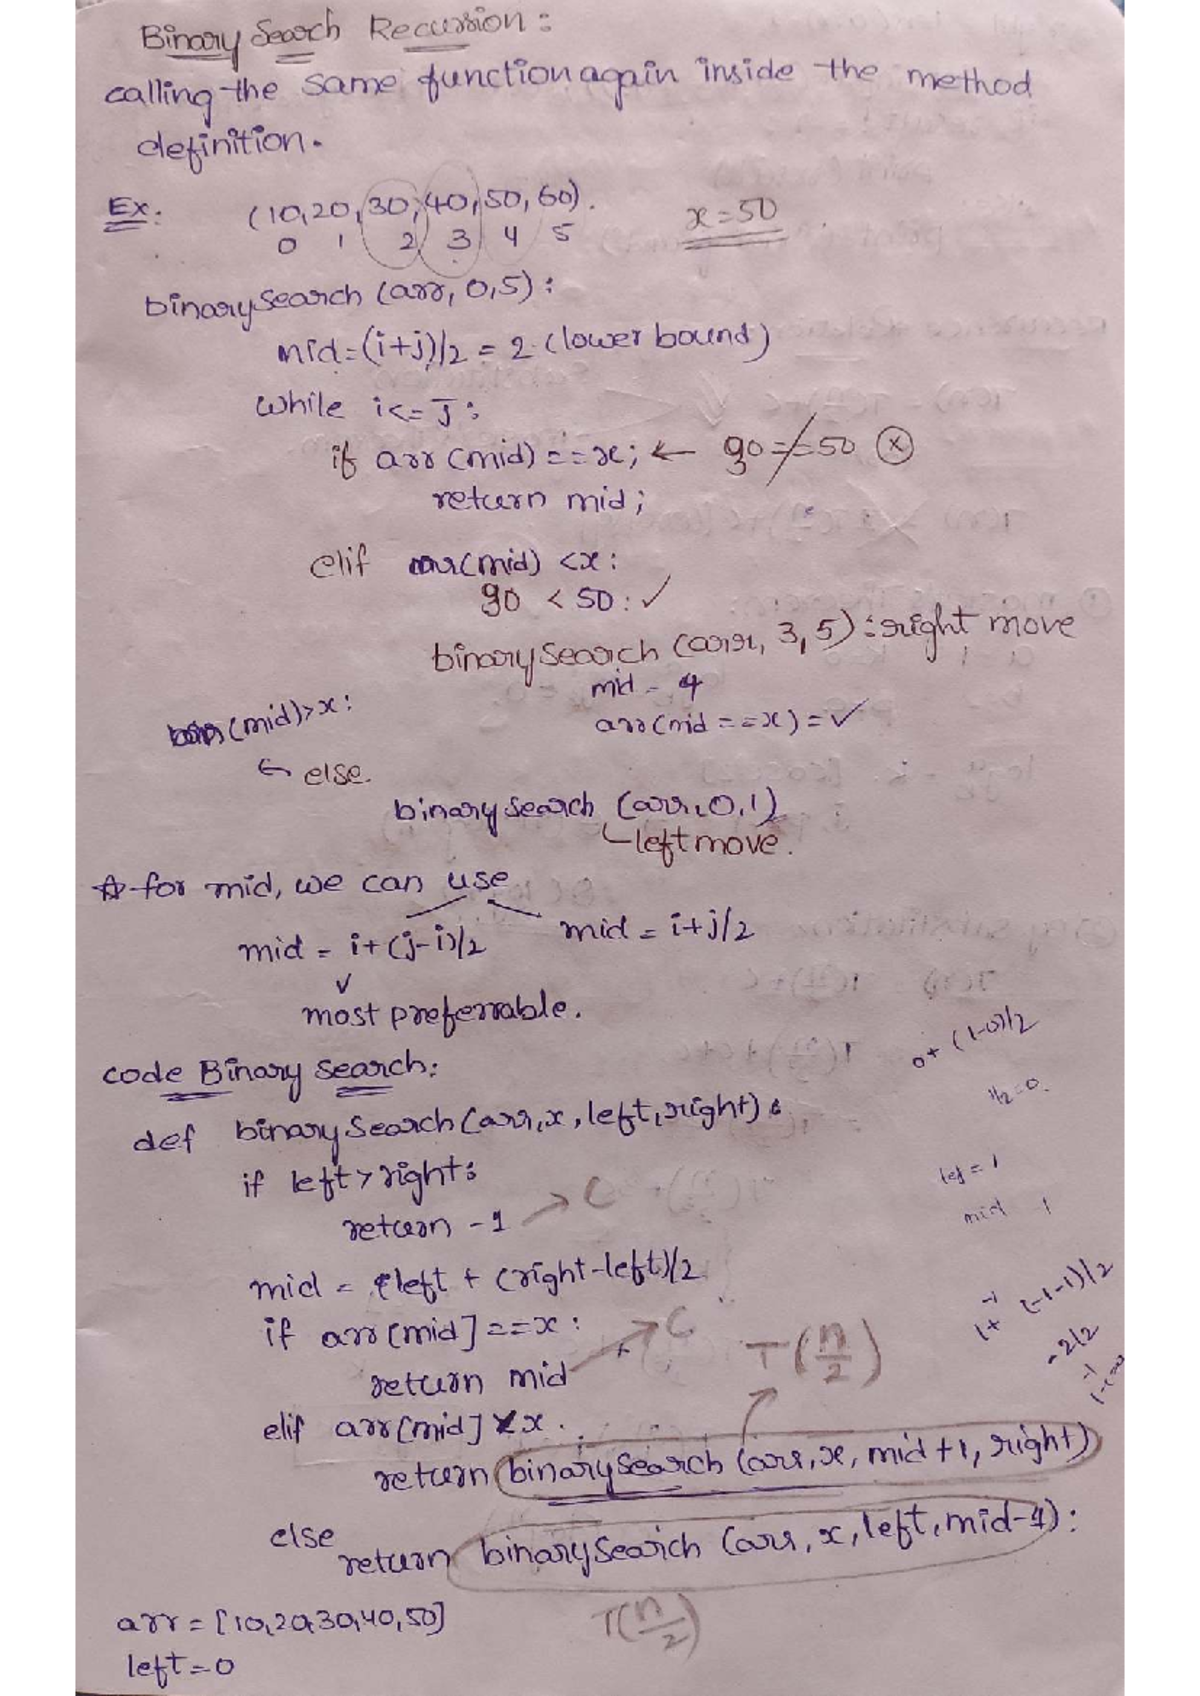 Binary Search Recursion:
calling the same function again inside the method
definition.
Ex: (10,20,30,40,50,60). x=50
0 1 2 3 4 5
binarySearch (arr, 0,5):
mid=(i+j)/2 = 2 (lower bound)
while i<=j:
if arr (mid)==x; ← 30==50 ⓧ
return mid;
elif arr(mid) <x:
30 < 50: ✓
binarySearch (arr, 3,5): right move
mid = 4
arr(mid ==x)=✓
(mid)>x:
↩ else.
binary search (arr,0,1)
left move.
☆ for mid, we can use
mid = i+(j-i)/2 mid = i+j/2
✓
most preferrable.
0+ (1-0)/2
code Binary Search:
1/2=0.
def binarySearch(arr,x,left,right):
if left>right:
lef=1
return -1 → C
mid 1
mid = left + (right-left)/2
if arr[mid]==x: → C
return mid
T(n/2)
-2/2
elif arr[mid]<x.
return binarySearch (arr,x, mid+1, right)
else
return binarySearch (arr,x,left,mid-1):
arr=[10,20,30,40,50] T(n/2)
left=0